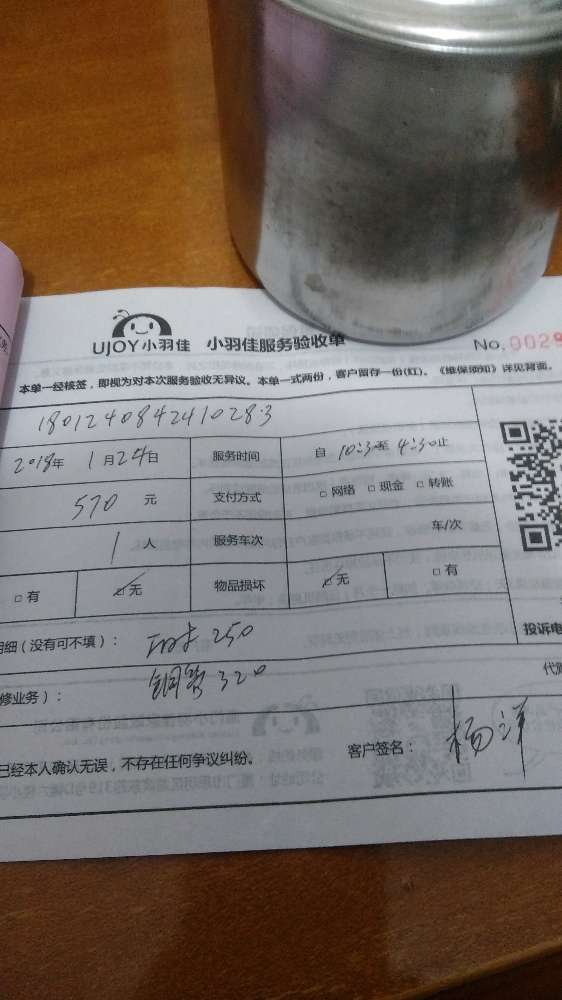 UJOY小羽佳 小羽佳服务验收单 No.0029
本单一经核签，即视为对本次服务验收无异议。本单一式两份，客户留存一份(红)。《维保须知》详见背面。
1801240842410283
2018年 1月24日 服务时间 自 10:30至 4:30止
570 元 支付方式 □ 网络 □ 现金 □ 转账
1 人 服务车次 车/次
□ 有 □ 无 物品损坏 □ 无 □ 有
明细（没有可不填）： 250 投诉电
铜管320 代
修业务）：
已经本人确认无误，不存在任何争议纠纷。 客户签名： 杨洋